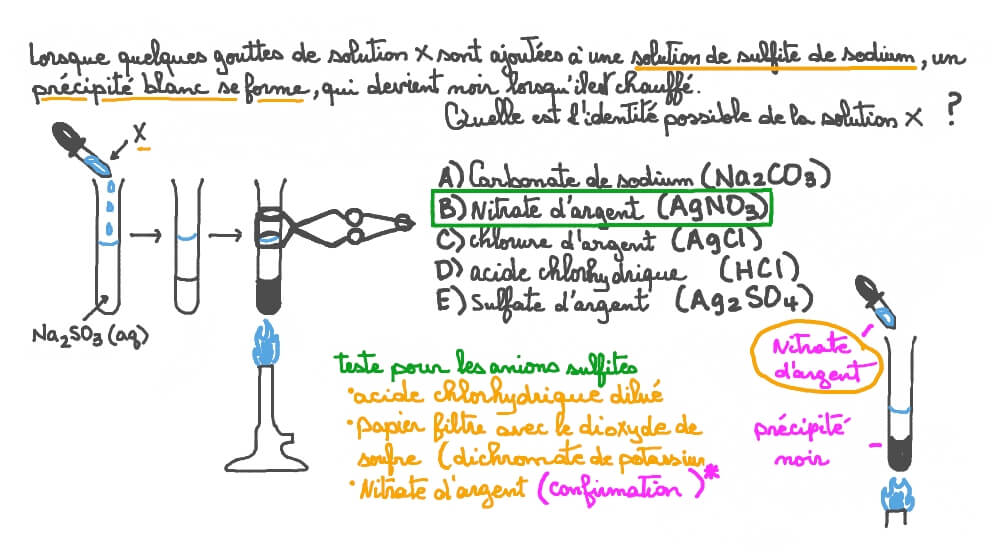 Lorsque quelques gouttes de solution X sont ajoutées à une solution de sulfite de sodium, un
précipité blanc se forme, qui devient noir lorsqu'il est chauffé.
Quelle est l'identité possible de la solution X ?
X
A) Carbonate de sodium (Na2CO3)
B) Nitrate d'argent (AgNO3)
C) chlorure d'argent (AgCl)
D) acide chlorhydrique (HCl)
E) Sulfate d'argent (Ag2SO4)
Na2SO3 (aq)
teste pour les anions sulfites
• acide chlorhydrique dilué
• Papier filtre avec le dioxyde de
soufre (dichromate de potassium
• Nitrate d'argent (confirmation)*
Nitrate
d'argent
précipité
noir